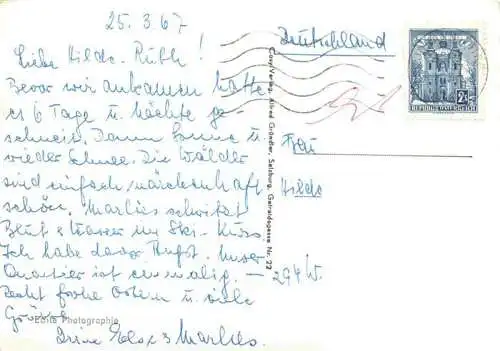 25.3.67
Liebe Hilde-Ruth!
Bevor wir ankamen hatte
es 6 Tage u. Nächte ge-
schneit. Dann Sonne u.
wieder Schnee. Die Wälder
sind einfach märchenhaft
schön. Marlies schwitzt
Blut & Wasser im Ski-Kurs.
Ich habe das Unser
Quartier ist einmalig. —
Recht frohe Ostern u. viele
Grüsse
Deine & Marlies.
Echte Photographie
Cosy-Verlag, Alfred Gründler, Salzburg, Getreidegasse Nr. 22
Deutschland
Frau
Hilde
294 W.
REPUBLIK ÖSTERREICH